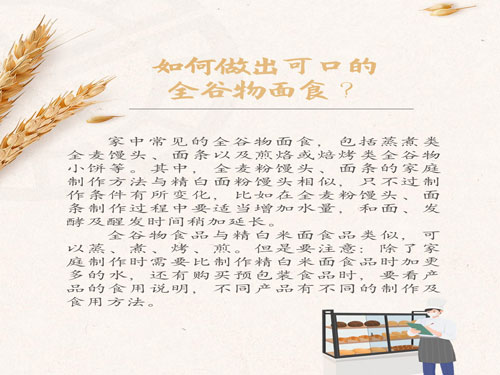 如何做出可口的
全谷物面食？
家中常见的全谷物面食，包括蒸煮类
全麦馒头、面条以及煎烙或焙烤类全谷物
小饼等。其中，全麦粉馒头、面条的家庭
制作方法与精白面粉馒头相似，只不过制
作条件有所变化，比如在全麦粉馒头、面
条制作过程中要适当增加水量，和面、发
酵及醒发时间稍加延长。
全谷物食品与精白米面食品类似，可
以蒸、煮、烤、煎。但是要注意：除了家
庭制作时需要比制作精白米面食品时加更
多的水，还有购买预包装食品时，要看产
品的食用说明，不同产品有不同的制作及
食用方法。